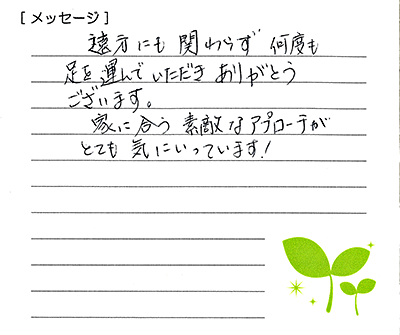 [メッセージ]
遠方にも関わらず 何度も
足を運んでいただき ありがとう
ございます。
家に合う 素敵なアプローチが
とても 気にいっています!